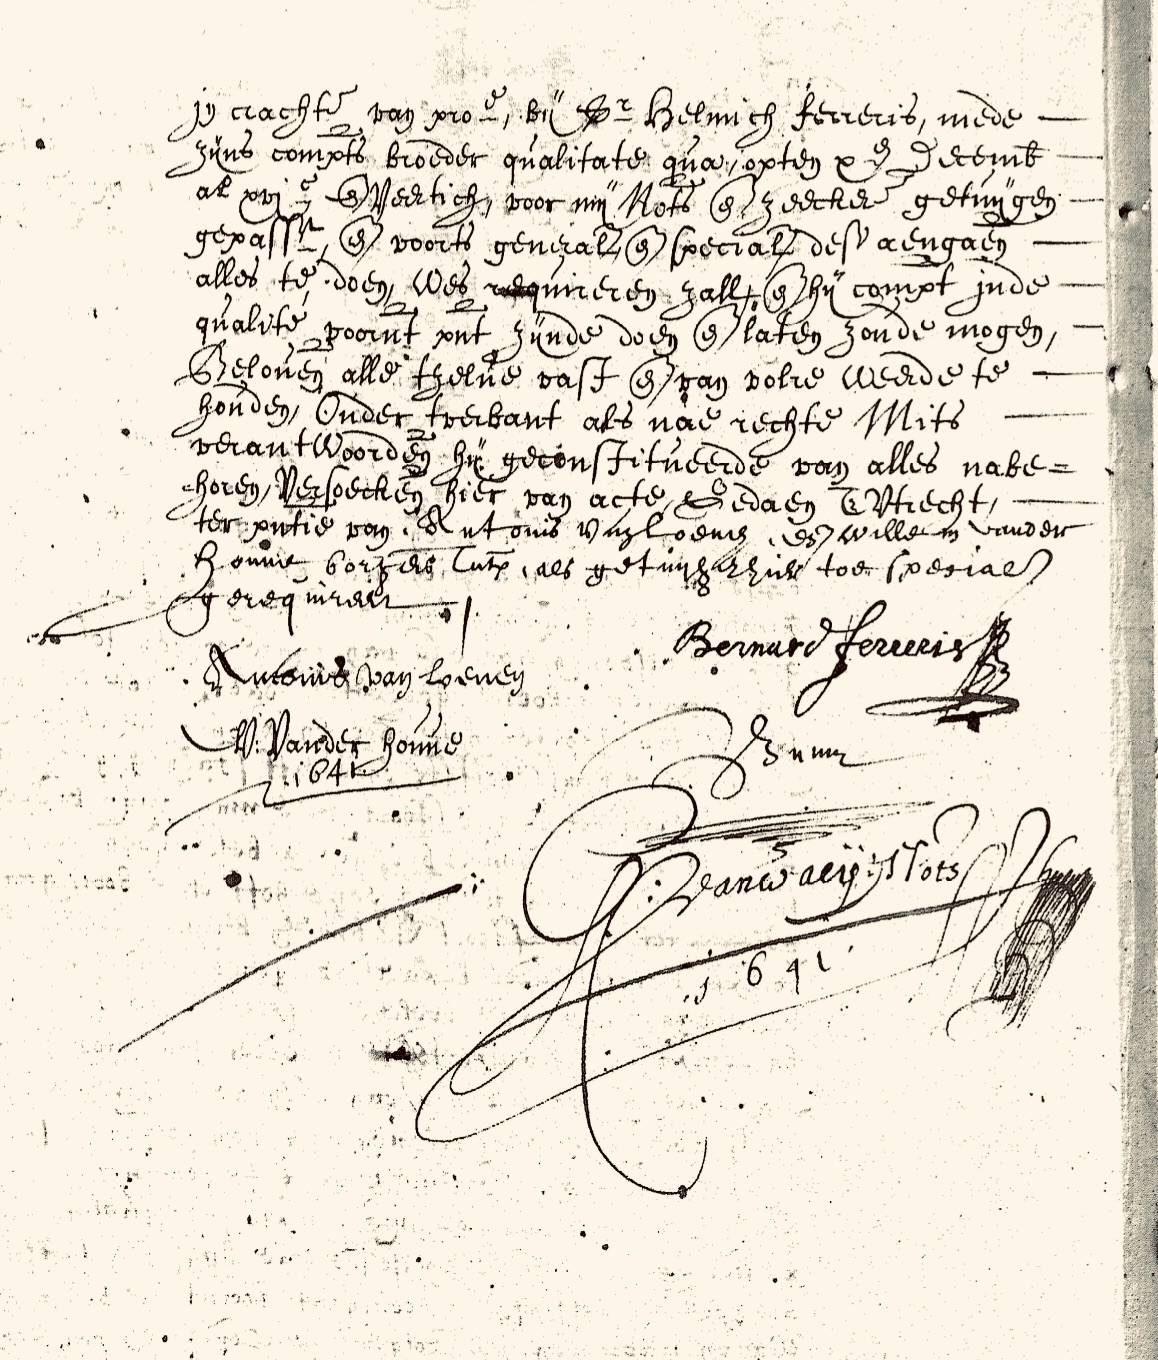 in crachte van proe, bij Sr Helmich ferreris, mede
zijns compts broeder qualitate qua, opten xe Decemb
al xvjc en Veertich, voor mij Nots en zeecker getuijgen
gepasst, en voorts generall en speciall des aengaen
alles te doen, Wes requireren zall, en hij compt inde
qualite voornt pnt zijnde doen en laten zonde mogen,
Geloven alle tzelve vast en van volre weerde te
houden, Onder verbant als nae rechte Mits
verantwoorden hij geconstitueerde van alles nabe=
horen, Versoecken hier van acte, Gedaen TVtrecht,
ter pntie van Antonis van Loenen, en Willem vander
houve borgers Tutr, als getuijgen hier toe speciael
gerequireert
Bernard ferreris
Antonis van Loenen
W. Vander houve
1641
Nots
1641